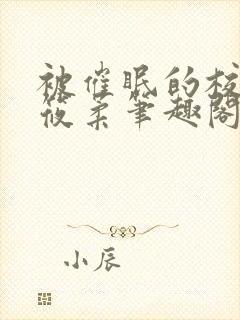 被催眠的校
筱柔笔趣阁
小辰